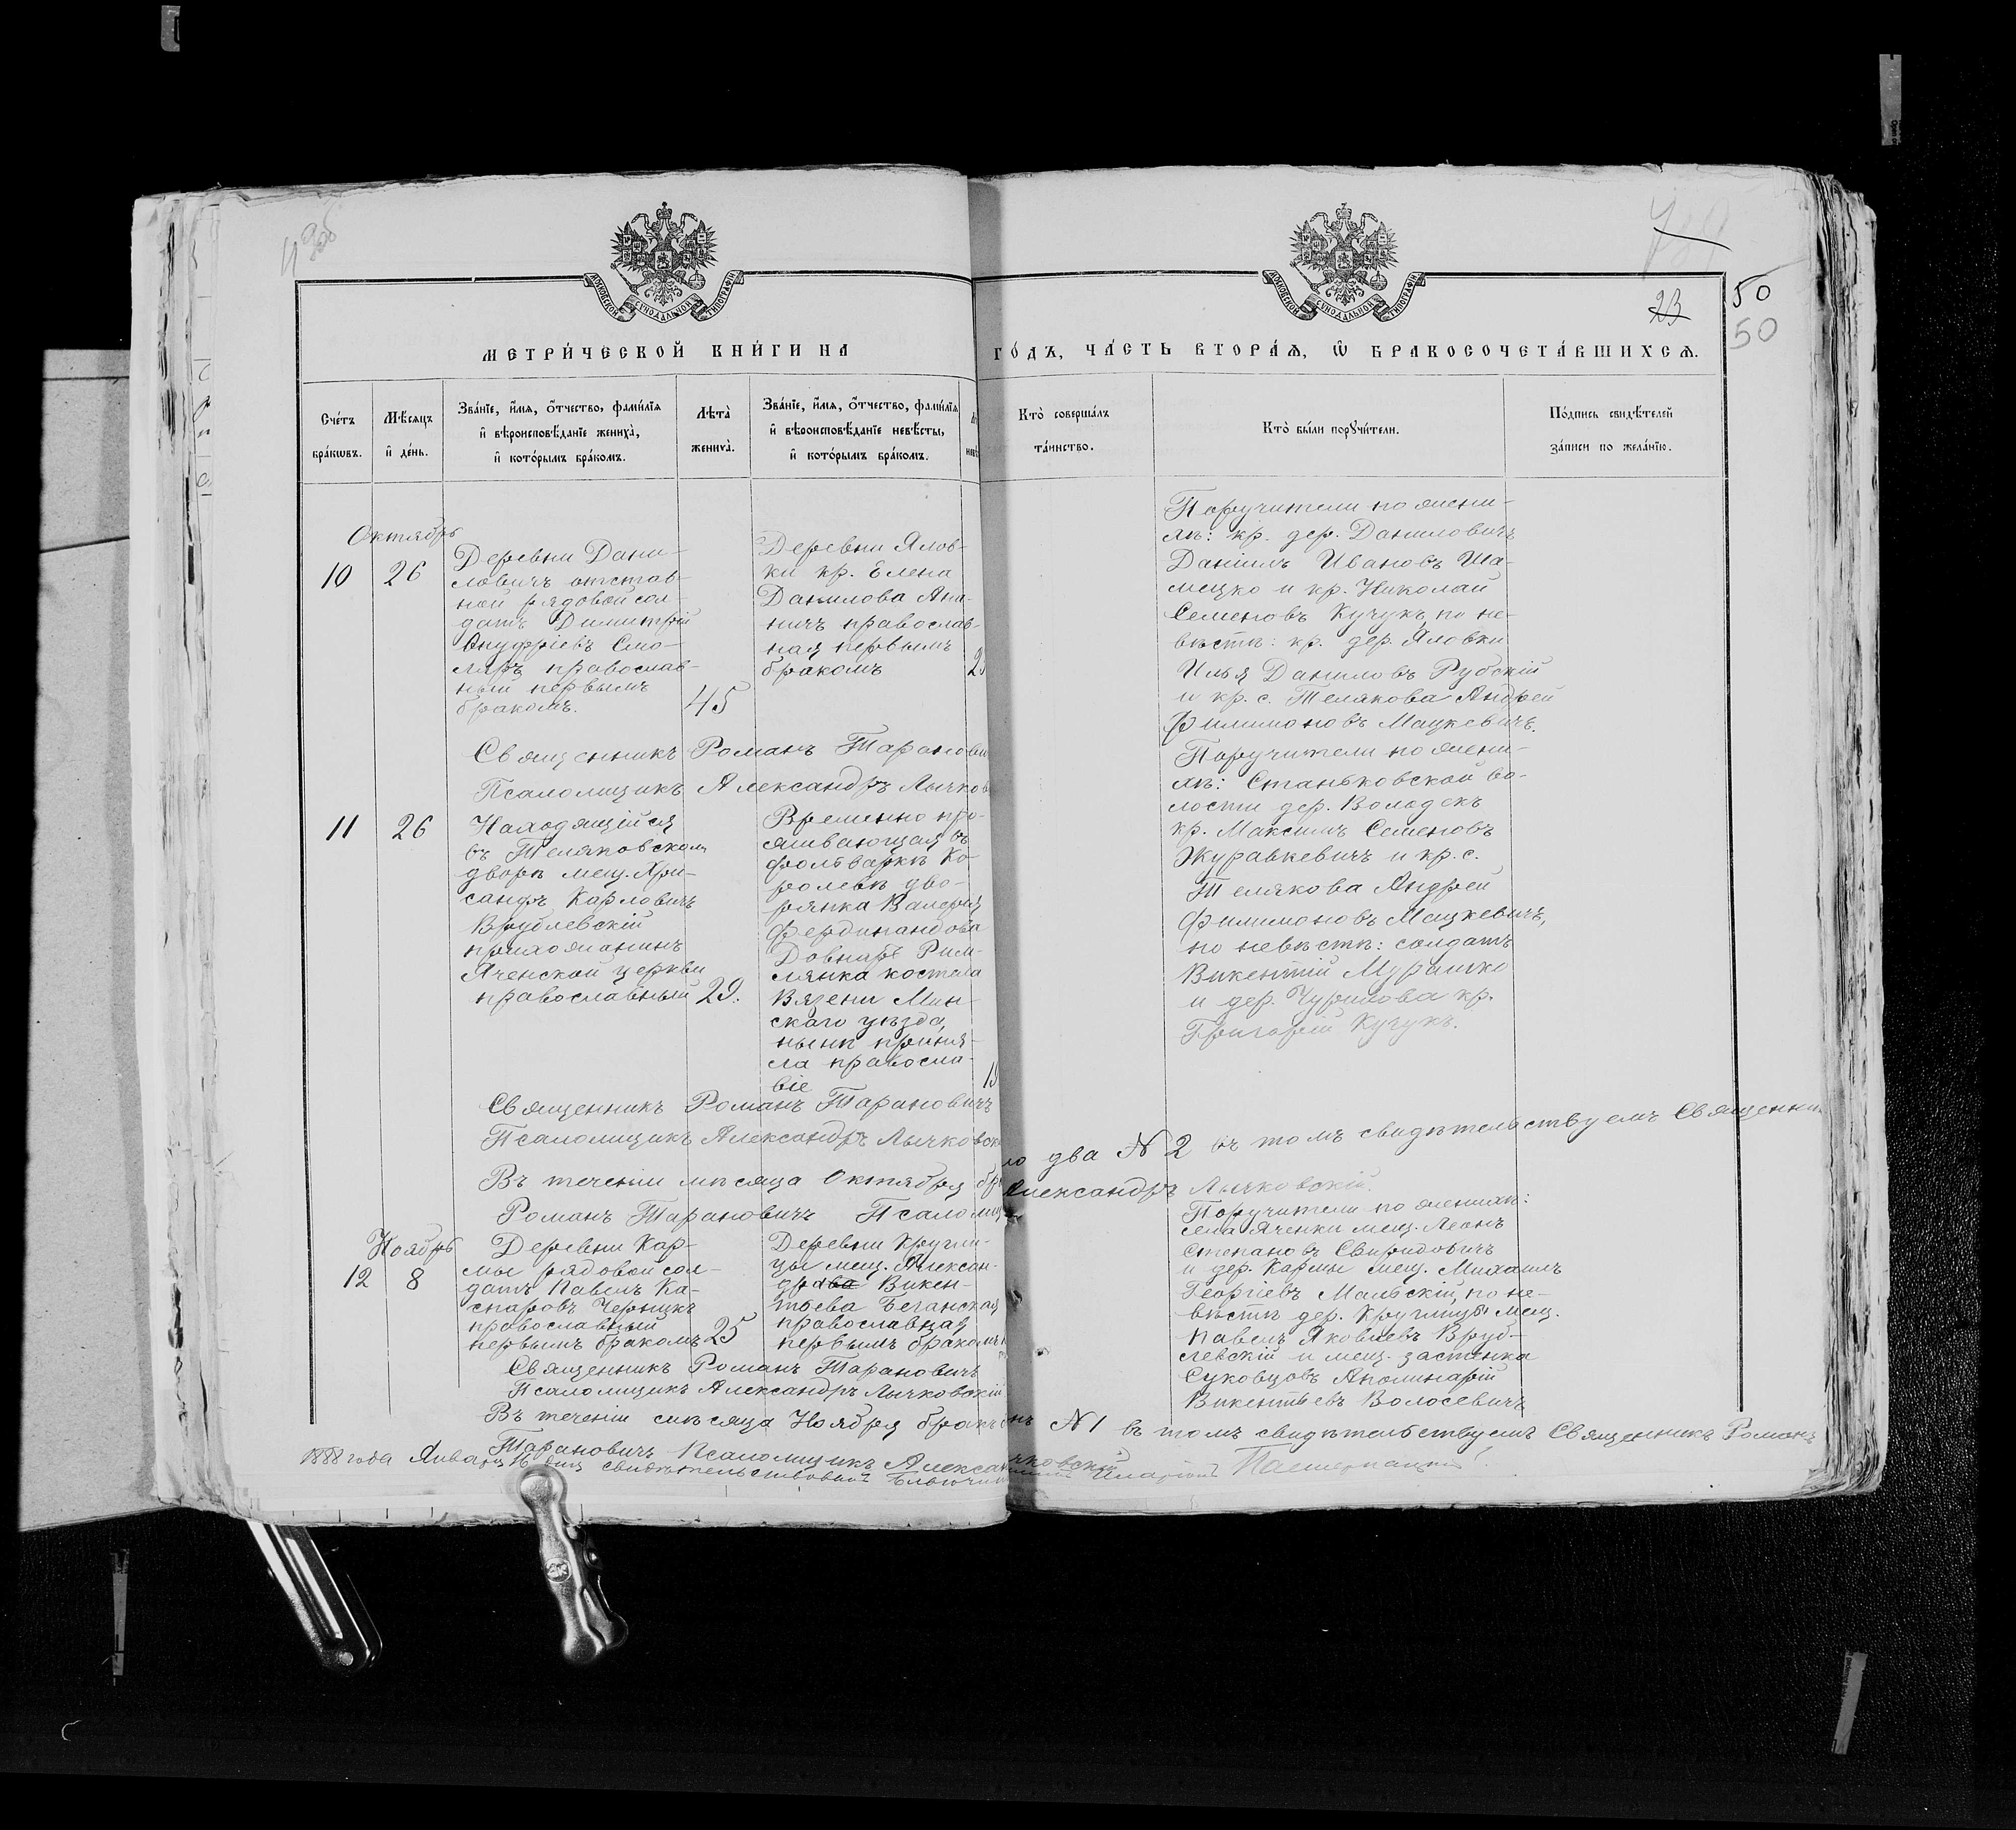 50
23
50
МОСКОВСКОЙ СѴНОДАЛЬНОЙ ТИПОГРАФІИ
МОСКОВСКОЙ СѴНОДАЛЬНОЙ ТИПОГРАФІИ
МЕТРИ́ЧЕСКОЙ КНИ́ГИ НА ГО́ДЪ, ЧА́СТЬ ВТОРА́Ѧ, Ѽ БРАКОСОЧЕТА́ВШИХСѦ.
Сче́тъ бра́кѡвъ.
Мѣ́сѧцъ и҆ де́нь.
Зва́нїе, и҆́мѧ, ѻ҆́тчество, фами́лїѧ
и҆ вѣроисповѣ́данїе жениха̀,
и҆ кото́рымъ бра́комъ.
Лѣ́та̀ жениха̀.
Зва́нїе, и҆́мѧ, ѻ҆́тчество, фами́лїѧ
и҆ вѣроисповѣ́данїе невѣ́сты,
и҆ кото́рымъ бра́комъ.
Кто̀ соверша́лъ
та́инство.
Кто̀ бы́ли порꙋчи́тели.
По́дпись свидѣ́телей
за́писи по жела́нїю.
Октябрь
10
26
Деревни Дани-
ловичъ отстав-
ной рядовой сол-
датъ Димитрій
Онуфріевъ Смо-
ляръ православ-
ный первымъ
бракомъ.
45
Деревни Ялов-
ки кр. Елена
Данилова Ани-
ничъ православ-
ная первымъ
бракомъ
Поручители по жени-
хѣ: кр. дер. Даниловичъ
Даніилъ Ивановъ Ша-
мецко и кр. Николай
Семеновъ Кучукъ, по не-
вѣстѣ: кр. дер. Яловки
Илья Даниловъ Рубскій
и кр. с. Телякова Андрей
Филимоновъ Мацкевичъ.
Священникъ Романъ Таранови
Псаломщикъ Александръ Лычков
11
26
Находящійся
въ Теляковскомъ
дворѣ мещ. Хри-
санфъ Карловичъ
Врублевскій
прихожанинъ
Яченской церкви
православный
29.
Временно про-
живающая въ
фольваркѣ Ко-
ролевѣ дво-
рянка Валерія
Фердинандова
Довнаръ Рим-
лянка костела
Вязени Мин-
скаго уѣзда,
нынѣ приня-
ла правосла-
віе
Поручители по жени-
хѣ: Станьковской во-
лости дер. Володекъ
кр. Максимъ Семеновъ
Журавкевичъ и кр. с.
Телякова Андрей
Филимоновъ Мацкевичъ,
по невѣстѣ: солдатъ
Викентій Мурашко
и дер. Чурилова кр.
Григорій Кучукъ.
Священникъ Романъ Тарановичъ
Псаломщикъ Александръ Лычковск
Въ теченіи мѣсяца Октября бр ло два № 2 въ томъ свидѣтельствуемъ Священни
Романъ Тарановичъ Псаломщ Александръ Лычковскій.
Ноябрь
12
8
Деревни Кар-
мы рядовой сол-
датъ Павелъ Ка-
спаровъ Черникъ
православный
первымъ бракомъ
25
Деревни Кругли-
цы мещ. Алексан-
дра Викен-
тьева Беганская
православная
первымъ бракомъ
Поручители по женихѣ:
села Яченки мещ. Леонъ
Степановъ Свиридовичъ
и дер. Кармы мещ. Михаилъ
Георгіевъ Мальскій, по не-
вѣстѣ дер. Круглицы мещ.
Павелъ Яковлевъ Вруб-
левскій и мещ. застѣнка
Суковцовъ Аполинарій
Викентьевъ Волосевичъ
Священникъ Романъ Тарановичъ
Псаломщикъ Александръ Лычковскій
Въ теченіи мѣсяца Ноября бракъ № 1 въ томъ свидѣтельствуемъ Священникъ Романъ
Тарановичъ Псаломщикъ Алекса чковскій
1888 года Января 16 дня свидѣтельствовалъ Благочин